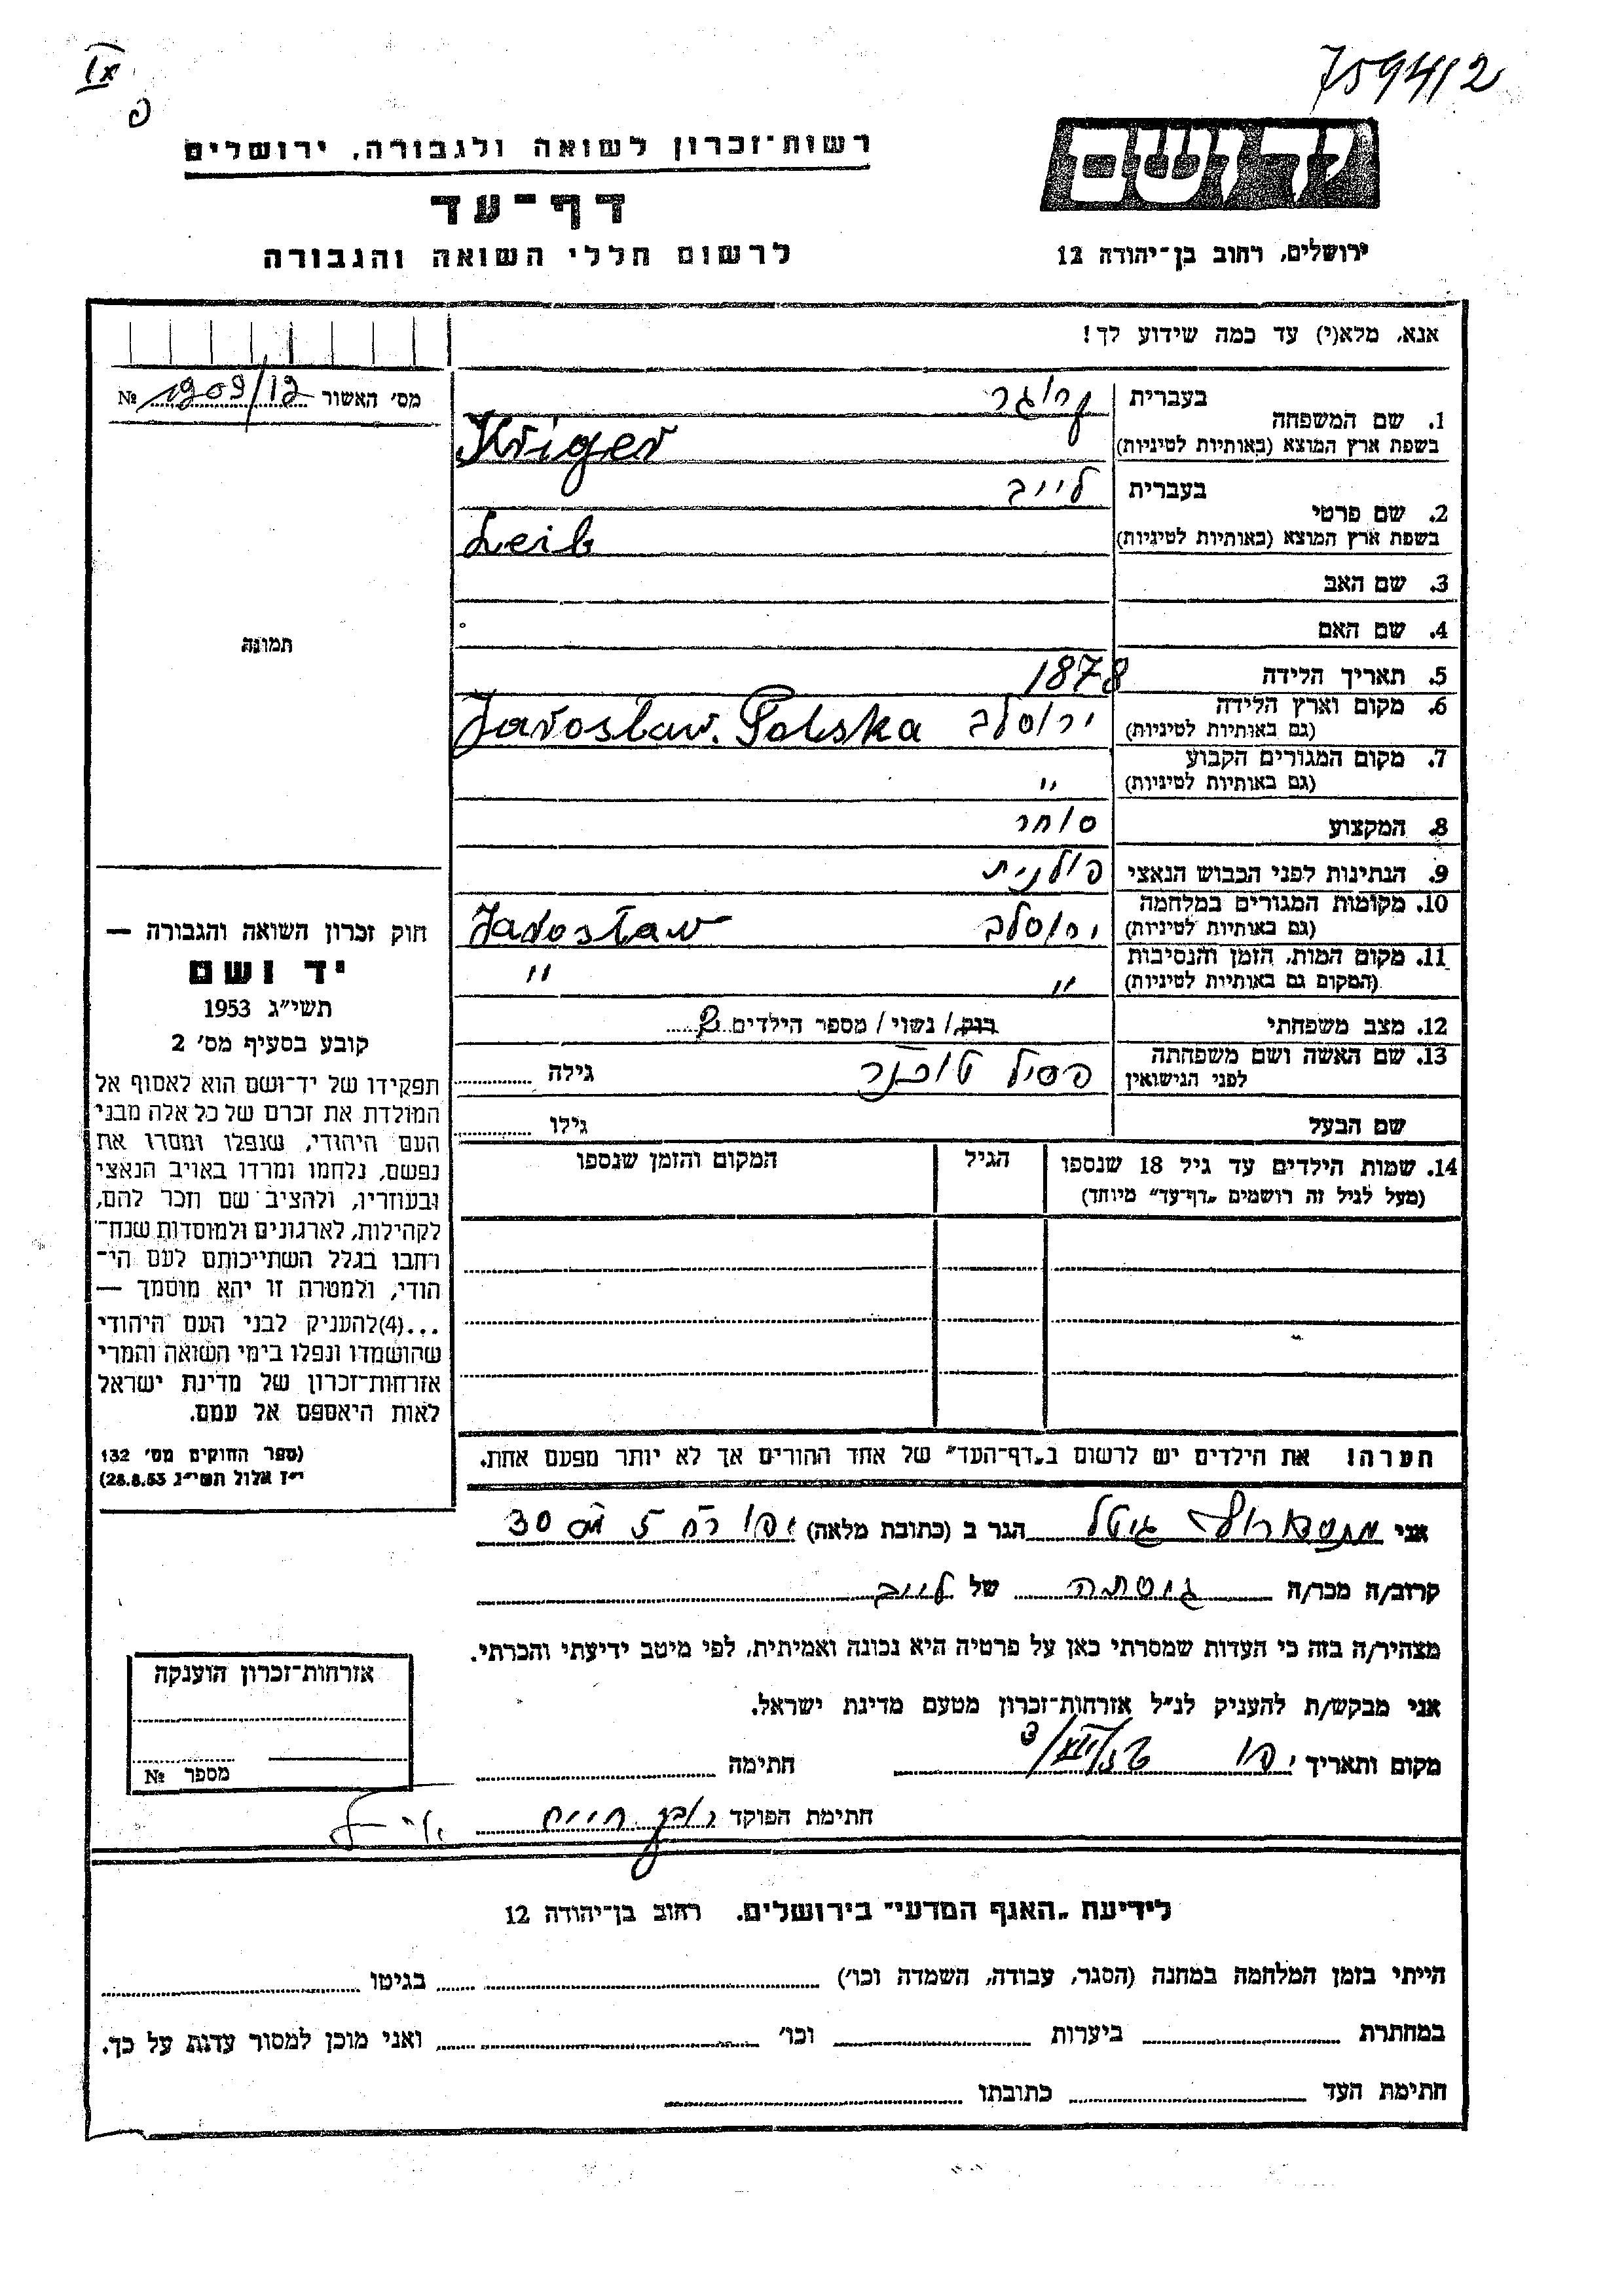 IX
75941/2
רשות־זכרון לשואה ולגבורה, ירושלים
דף־עד
לרשום חללי השואה והגבורה
יד ושם
ירושלים, רחוב בן־יהודה 12
אנא, מלא(י) עד כמה שידוע לך!
מס׳ האשור 1909/12 №
1. שם המשפחה
בעברית קריגר
בשפת ארץ המוצא (באותיות לטיניות) Kriger
2. שם פרטי
בעברית לייב
בשפת ארץ המוצא (באותיות לטיניות) Leib
3. שם האב
4. שם האם
תמונה
5. תאריך הלידה 1878
6. מקום וארץ הלידה
(גם באותיות לטיניות) ירוסלב Jarosław. Polska
7. מקום המגורים הקבוע
(גם באותיות לטיניות) "
8. המקצוע סוחר
9. הנתינות לפני הכבוש הנאצי פולנית
10. מקומות המגורים במלחמה
(גם באותיות לטיניות) ירוסלב Jarosław
11. מקום המות, הזמן והנסיבות
(המקום גם באותיות לטיניות) " "
12. מצב משפחתי רווק/ נשוי/ מספר הילדים
13. שם האשה ושם משפחתה
לפני הנישואין פסיל גילה
שם הבעל גילו
14. שמות הילדים עד גיל 18 שנספו
(מעל לגיל זה רושמים „דף־עד" מיוחד)
הגיל
המקום והזמן שנספו
חוק זכרון השואה והגבורה —
יד ושם
תשי״ג 1953
קובע בסעיף מס׳ 2
תפקידו של יד־ושם הוא לאסוף אל
המולדת את זכרם של כל אלה מבני
העם היהודי, שנפלו ומסרו את
נפשם, נלחמו ומרדו באויב הנאצי
ובעוזריו, ולהציב שם וזכר להם,
לקהילות, לארגונים ולמוסדות שנח־
רחבו בגלל השתייכותם לעם הי־
הודי, ולמטרה זו יהא מוסמך —
...(4)להעניק לבני העם היהודי
שהושמדו ונפלו בימי השואה והמרי
אזרחות־זכרון של מדינת ישראל
לאות היאספם אל עמם.
(ספר החוקים מס׳ 132
י״ז אלול תשי״ג 28.8.53)
הערה! את הילדים יש לרשום ב„דף־העד" של אחד ההורים אך לא יותר מפעם אחת.
אני גיטל הגר ב (כתובת מלאה) יפו רח 5 מס 30
קרוב/ה מכר/ה גיסתה של לייב
מצהיר/ה בזה כי העדות שמסרתי כאן על פרטיה היא נכונה ואמיתית, לפי מיטב ידיעתי והכרתי.
אני מבקש/ת להעניק לנ״ל אזרחות־זכרון מטעם מדינת ישראל.
מקום ותאריך יפו חתימה
חתימת הפוקד חיים
אזרחות־זכרון הוענקה
מספר №
לידיעת „האגף המדעי" בירושלים, רחוב בן־יהודה 12
הייתי בזמן המלחמה במחנה (הסגר, עבודה, השמדה וכו׳) בגיטו
במחתרת ביערות וכו׳ ואני מוכן למסור עדות על כך.
חתימת העד כתובתו